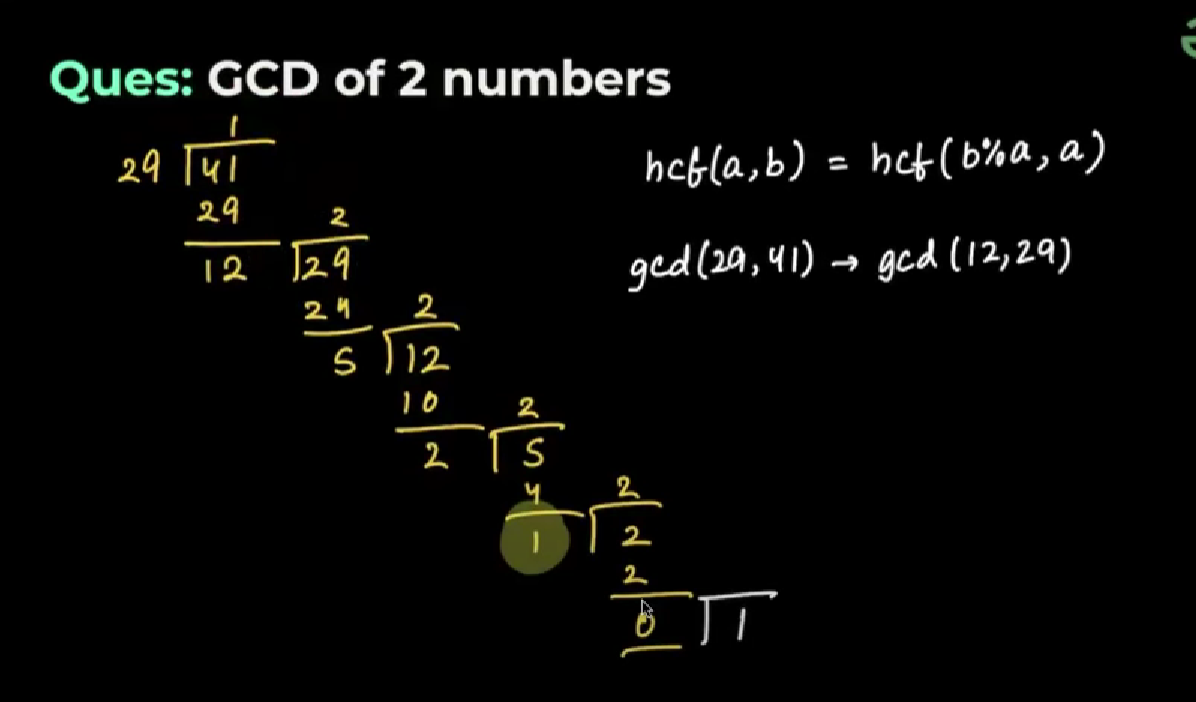 Ques: GCD of 2 numbers
1
29 41
29
12
2
29
24
5
2
12
10
2
2
5
4
1
2
2
2
0
1
hcf(a,b) = hcf(b%a, a)
gcd(29,41) → gcd(12,29)